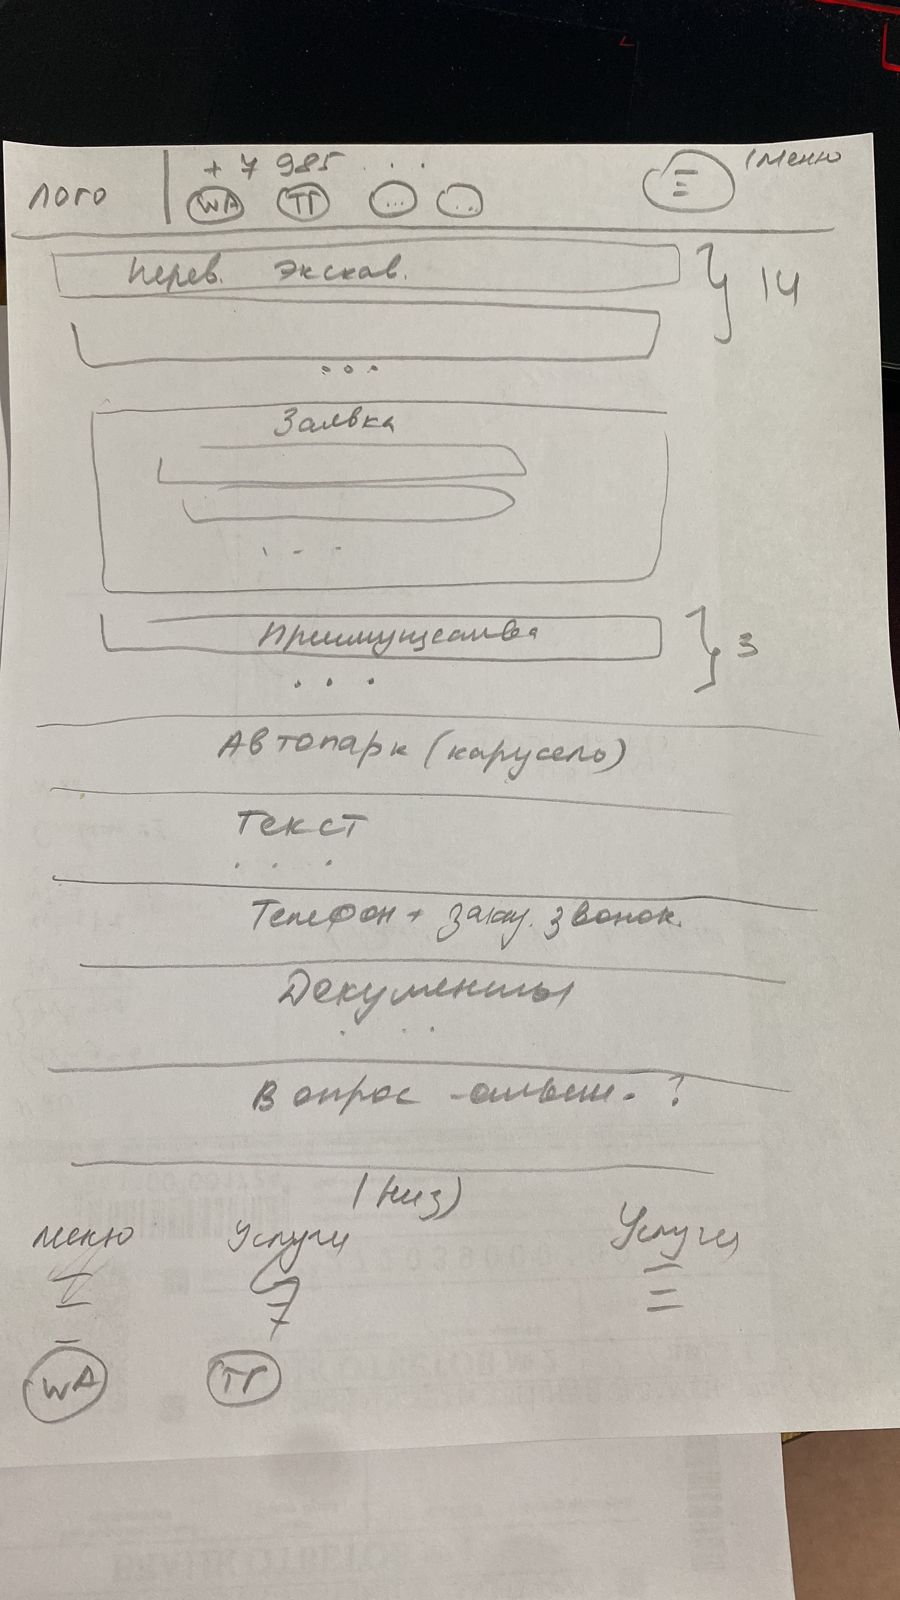 +7 985 ...
лого
WA ТГ ... ...
меню
Перев. Экскав.
14
...
Заявка
...
Преимущества
3
...
Автопарк (карусель)
Текст
...
Телефон + заказ. звонок.
Документы
...
Вопрос - ответ. ?
(Низ)
меню Услуги Услуги
7
WA ТГ